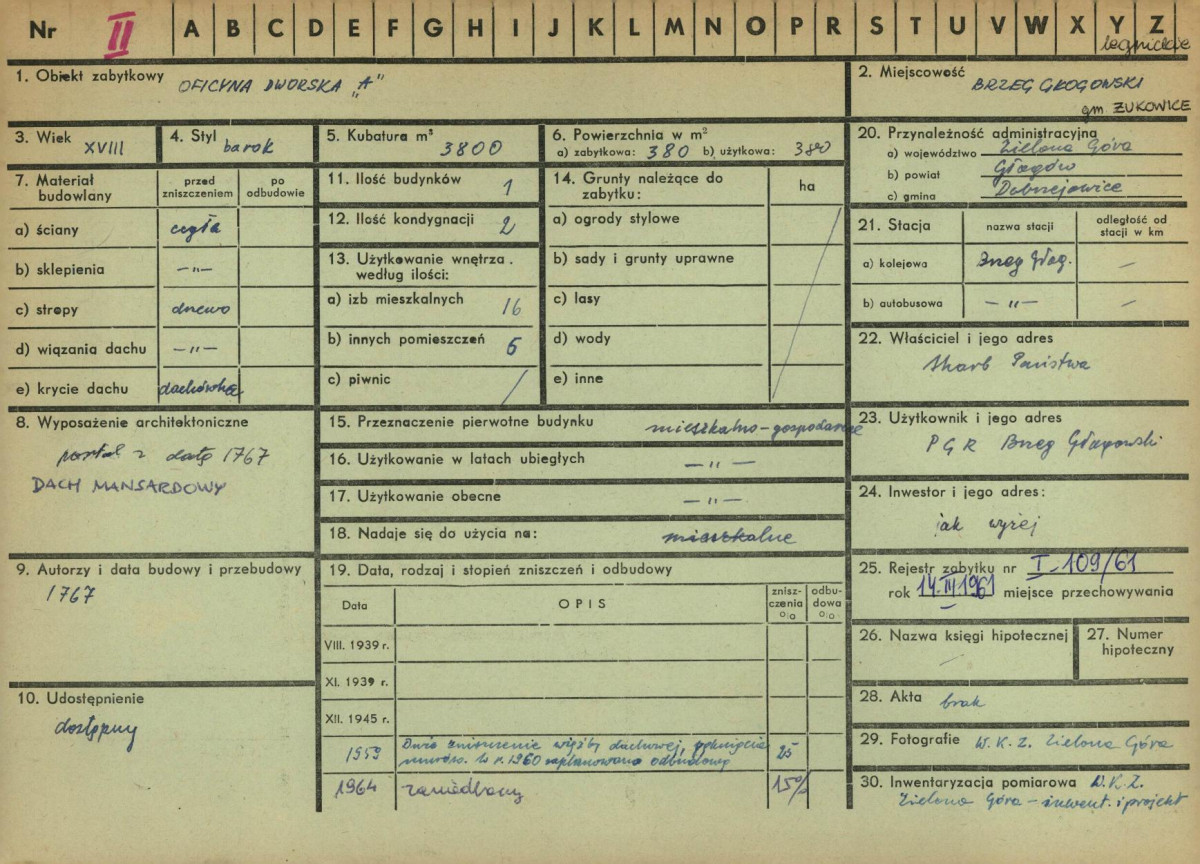 Nr II A B C D E F G H I J K L M N O P R S T U V W X Y Z
legnickie
1. Obiekt zabytkowy OFICYNA DWORSKA „A”
2. Miejscowość BRZEG GŁOGOWSKI
gm ŻUKOWICE
3. Wiek XVIII
4. Styl barok
5. Kubatura m³ 3800
6. Powierzchnia w m²
a) zabytkowa: 380 b) użytkowa: 380
7. Materiał budowlany
przed zniszczeniem
po odbudowie
a) ściany cegła
b) sklepienia —„—
c) stropy drzewo
d) wiązania dachu —„—
e) krycie dachu dachówka
8. Wyposażenie architektoniczne
portal z datą 1767
DACH MANSARDOWY
9. Autorzy i data budowy i przebudowy
1767
10. Udostępnienie
dostępny
11. Ilość budynków 1
12. Ilość kondygnacji 2
13. Użytkowanie wnętrza według ilości:
a) izb mieszkalnych 16
b) innych pomieszczeń 6
c) piwnic /
14. Grunty należące do zabytku:
ha
a) ogrody stylowe
b) sady i grunty uprawne
c) lasy
d) wody
e) inne
15. Przeznaczenie pierwotne budynku mieszkalno-gospodarcze
16. Użytkowanie w latach ubiegłych —„—
17. Użytkowanie obecne —„—
18. Nadaje się do użycia na: mieszkalne
19. Data, rodzaj i stopień zniszczeń i odbudowy
Data
OPIS
znisz-
czenia
%
odbu-
dowa
%
VIII. 1939 r.
XI. 1939 r.
XII. 1945 r.
1959 Duże zniszczenie więźby dachowej, pęknięcia
murów. W r. 1960 zaplanowano odbudowę 25
1964 zaniedbany 15%
20. Przynależność administracyjna
a) województwo Zielona Góra
b) powiat Głogów
c) gmina Dobrzejowice
21. Stacja
nazwa stacji
odległość od stacji w km
a) kolejowa Brzeg Głog. —
b) autobusowa —„— —
22. Właściciel i jego adres
Skarb Państwa
23. Użytkownik i jego adres
PGR Brzeg Głogowski
24. Inwestor i jego adres:
jak wyżej
25. Rejestr zabytku nr I-109/61
rok 14.III.1961 miejsce przechowywania
26. Nazwa księgi hipotecznej
—
27. Numer hipoteczny
28. Akta brak
29. Fotografie W.K.Z. Zielona Góra
30. Inwentaryzacja pomiarowa W.K.Z.
Zielona Góra – inwent. i projekt